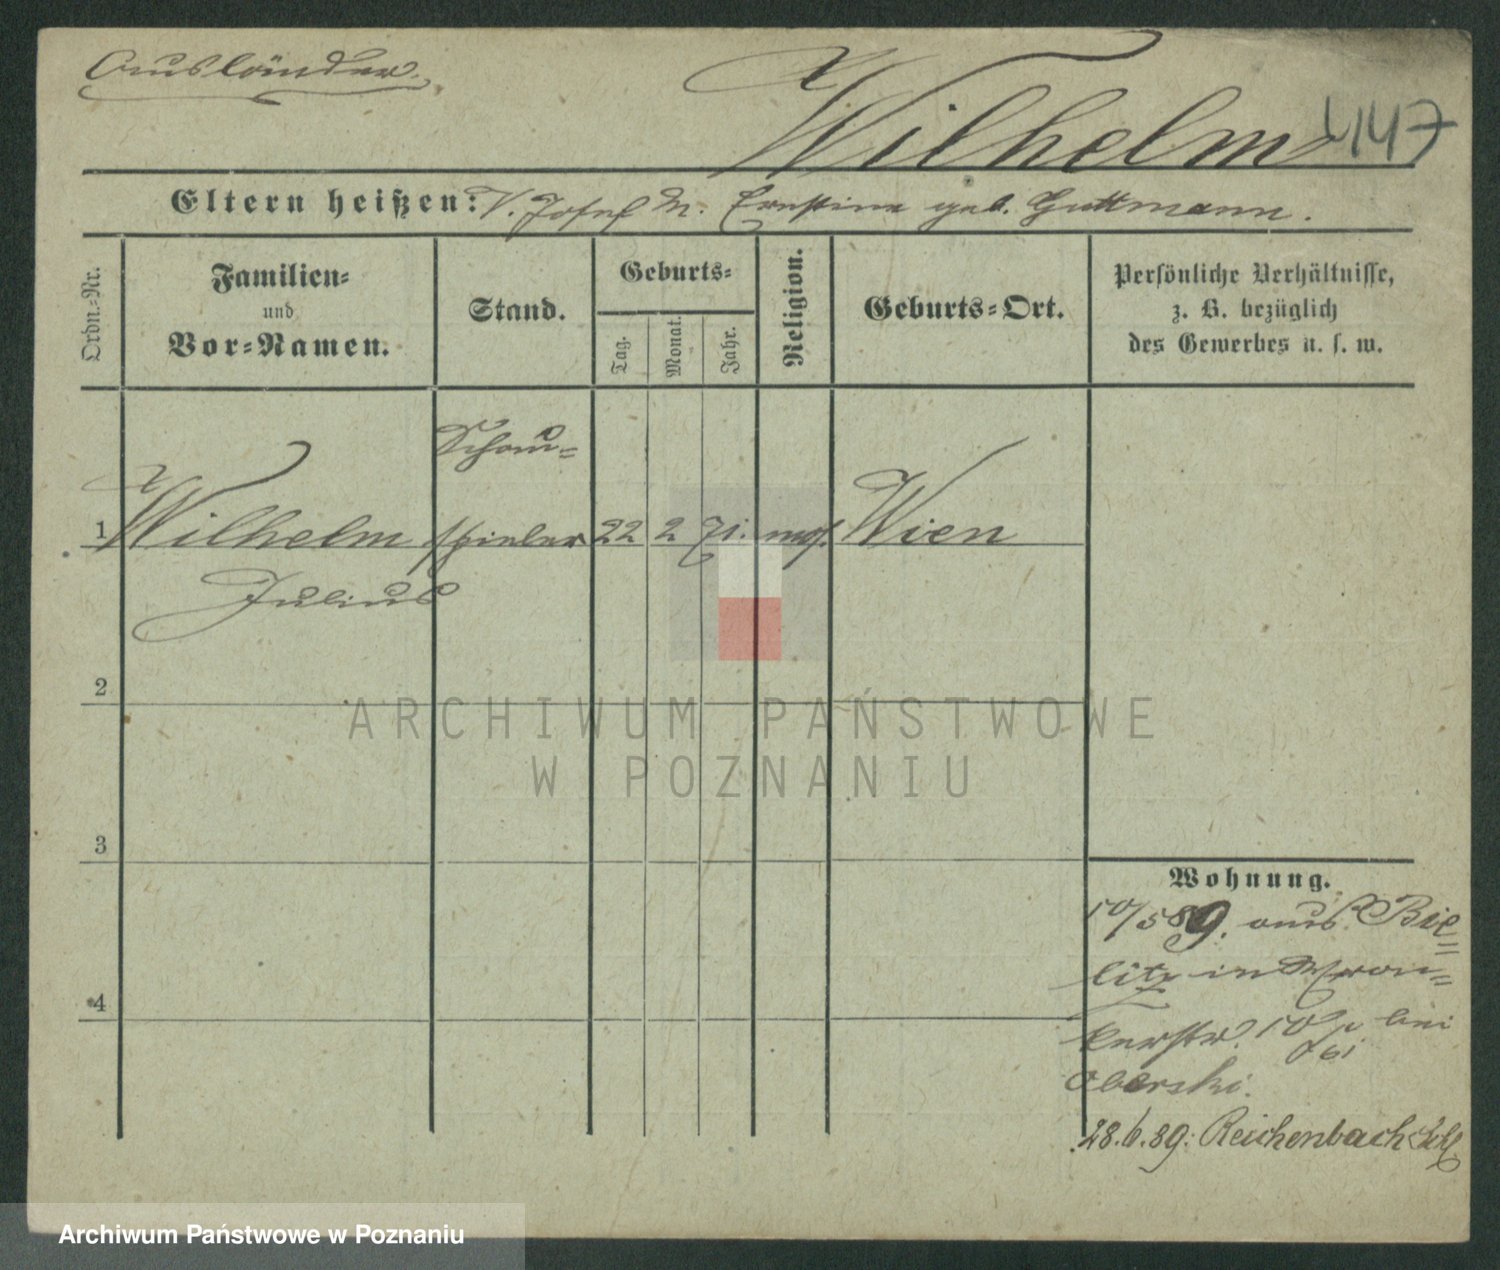 Ausländer.
Wilhelm
447
Eltern heißen: V. Josef M. Ernstine geb. Guttmann.
Ordn.-Nr.
Familien-
und
Vor-Namen.
Stand.
Geburts-
Tag.
Monat.
Jahr.
Religion.
Geburts-Ort.
Persönliche Verhältnisse,
z. B. bezüglich
des Gewerbes u. s. w.
Schau-
1 Wilhelm spieler 22 2 71. mos. Wien
Julius
2
ARCHIWUM PAŃSTWOWE
W POZNANIU
3
4
Wohnung.
10/5 89. aus Bie-
litz in Wron-
kerstr. 10 bei
Oberski.
28.6.89. Reichenbach Schl
Archiwum Państwowe w Poznaniu